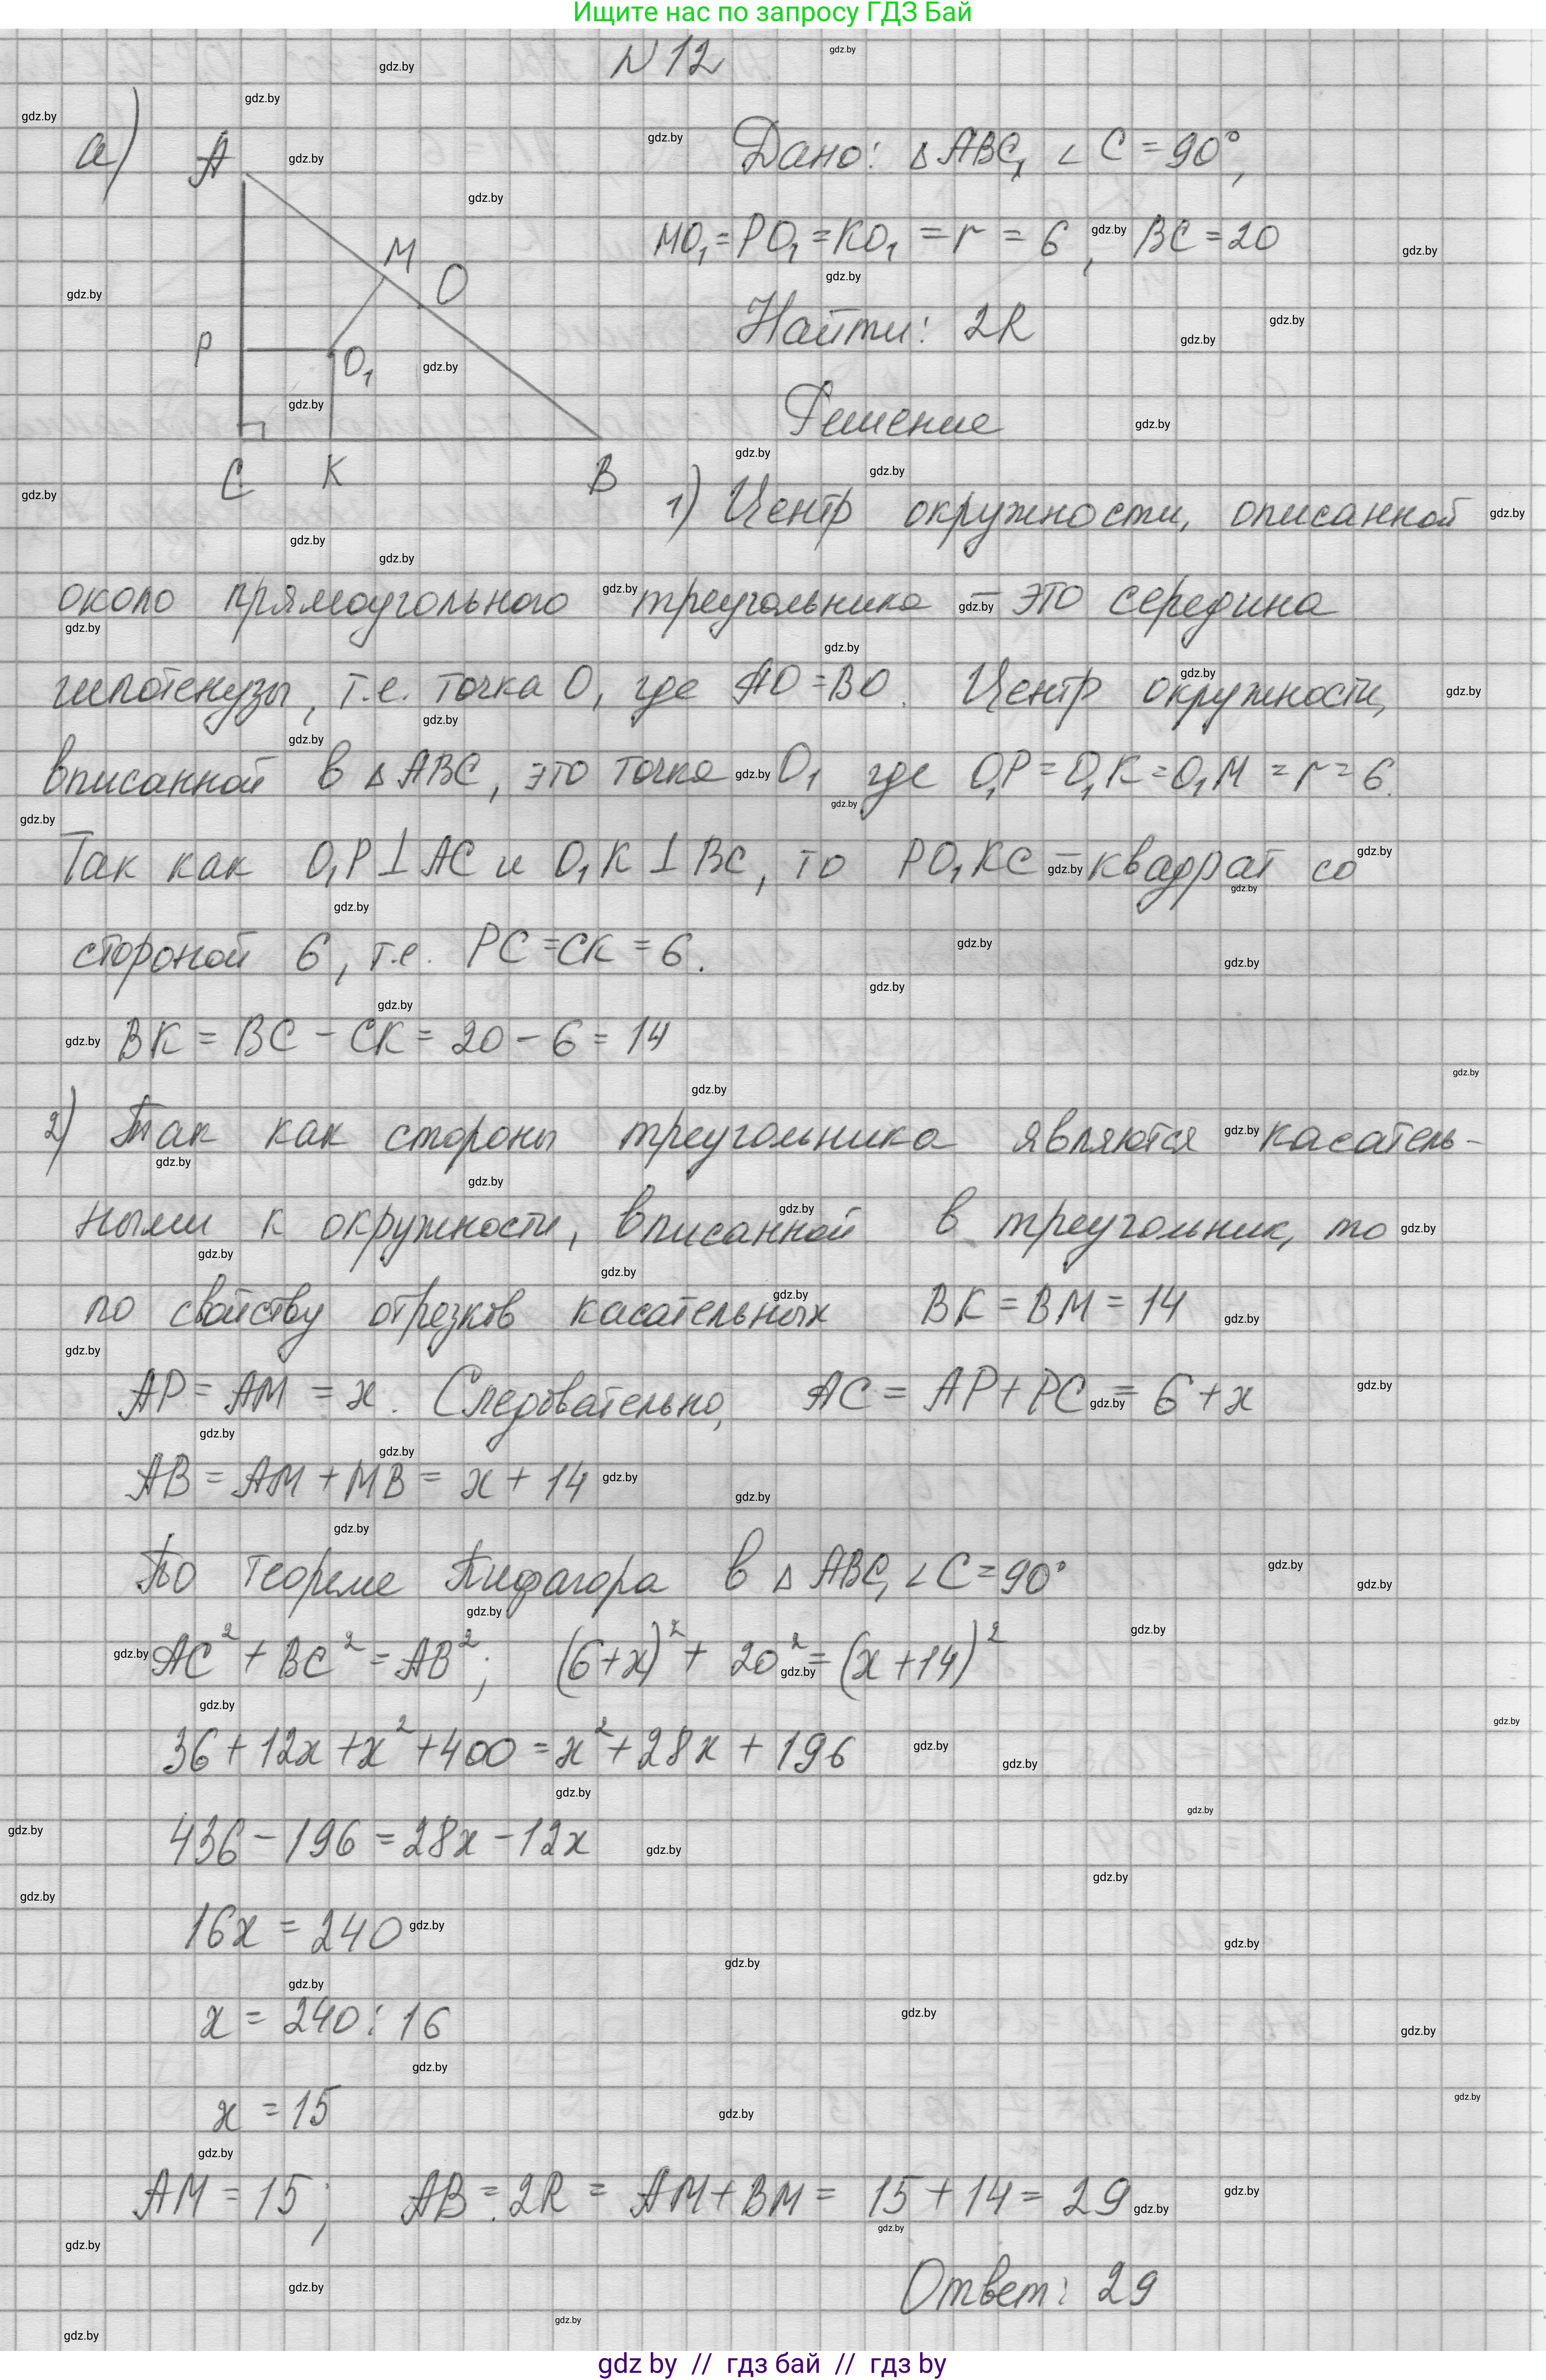 Ищите нас по запросу ГДЗ Бай
N 12
а)
A
M
O
P
O₁
C
K
B
Дано: Δ ABC, ∠ C = 90°,
MO₁ = PO₁ = KO₁ = r = 6, BC = 20
Найти: 2R
Решение
1) Центр окружности, описанной
около прямоугольного треугольника – это середина
гипотенузы, т.е. точка O, где AO = BO. Центр окружности,
вписанной в Δ ABC, это точка O₁ где O₁P = O₁K = O₁M = r = 6.
Так как O₁P ⊥ AC и O₁K ⊥ BC, то PO₁KC – квадрат со
стороной 6, т.е. PC = CK = 6.
BK = BC – CK = 20 – 6 = 14
2) Так как стороны треугольника являются касатель-
ными к окружности, вписанной в треугольник, то
по свойству отрезков касательных BK = BM = 14
AP = AM = x. Следовательно, AC = AP + PC = 6 + x
AB = AM + MB = x + 14
По теореме Пифагора в Δ ABC, ∠ C = 90°
AC² + BC² = AB²; (6+x)² + 20² = (x+14)²
36 + 12x + x² + 400 = x² + 28x + 196
436 – 196 = 28x – 12x
16x = 240
x = 240 : 16
x = 15
AM = 15; AB = 2R = AM + BM = 15 + 14 = 29
Ответ: 29
gdz by // гдз бай // гдз by